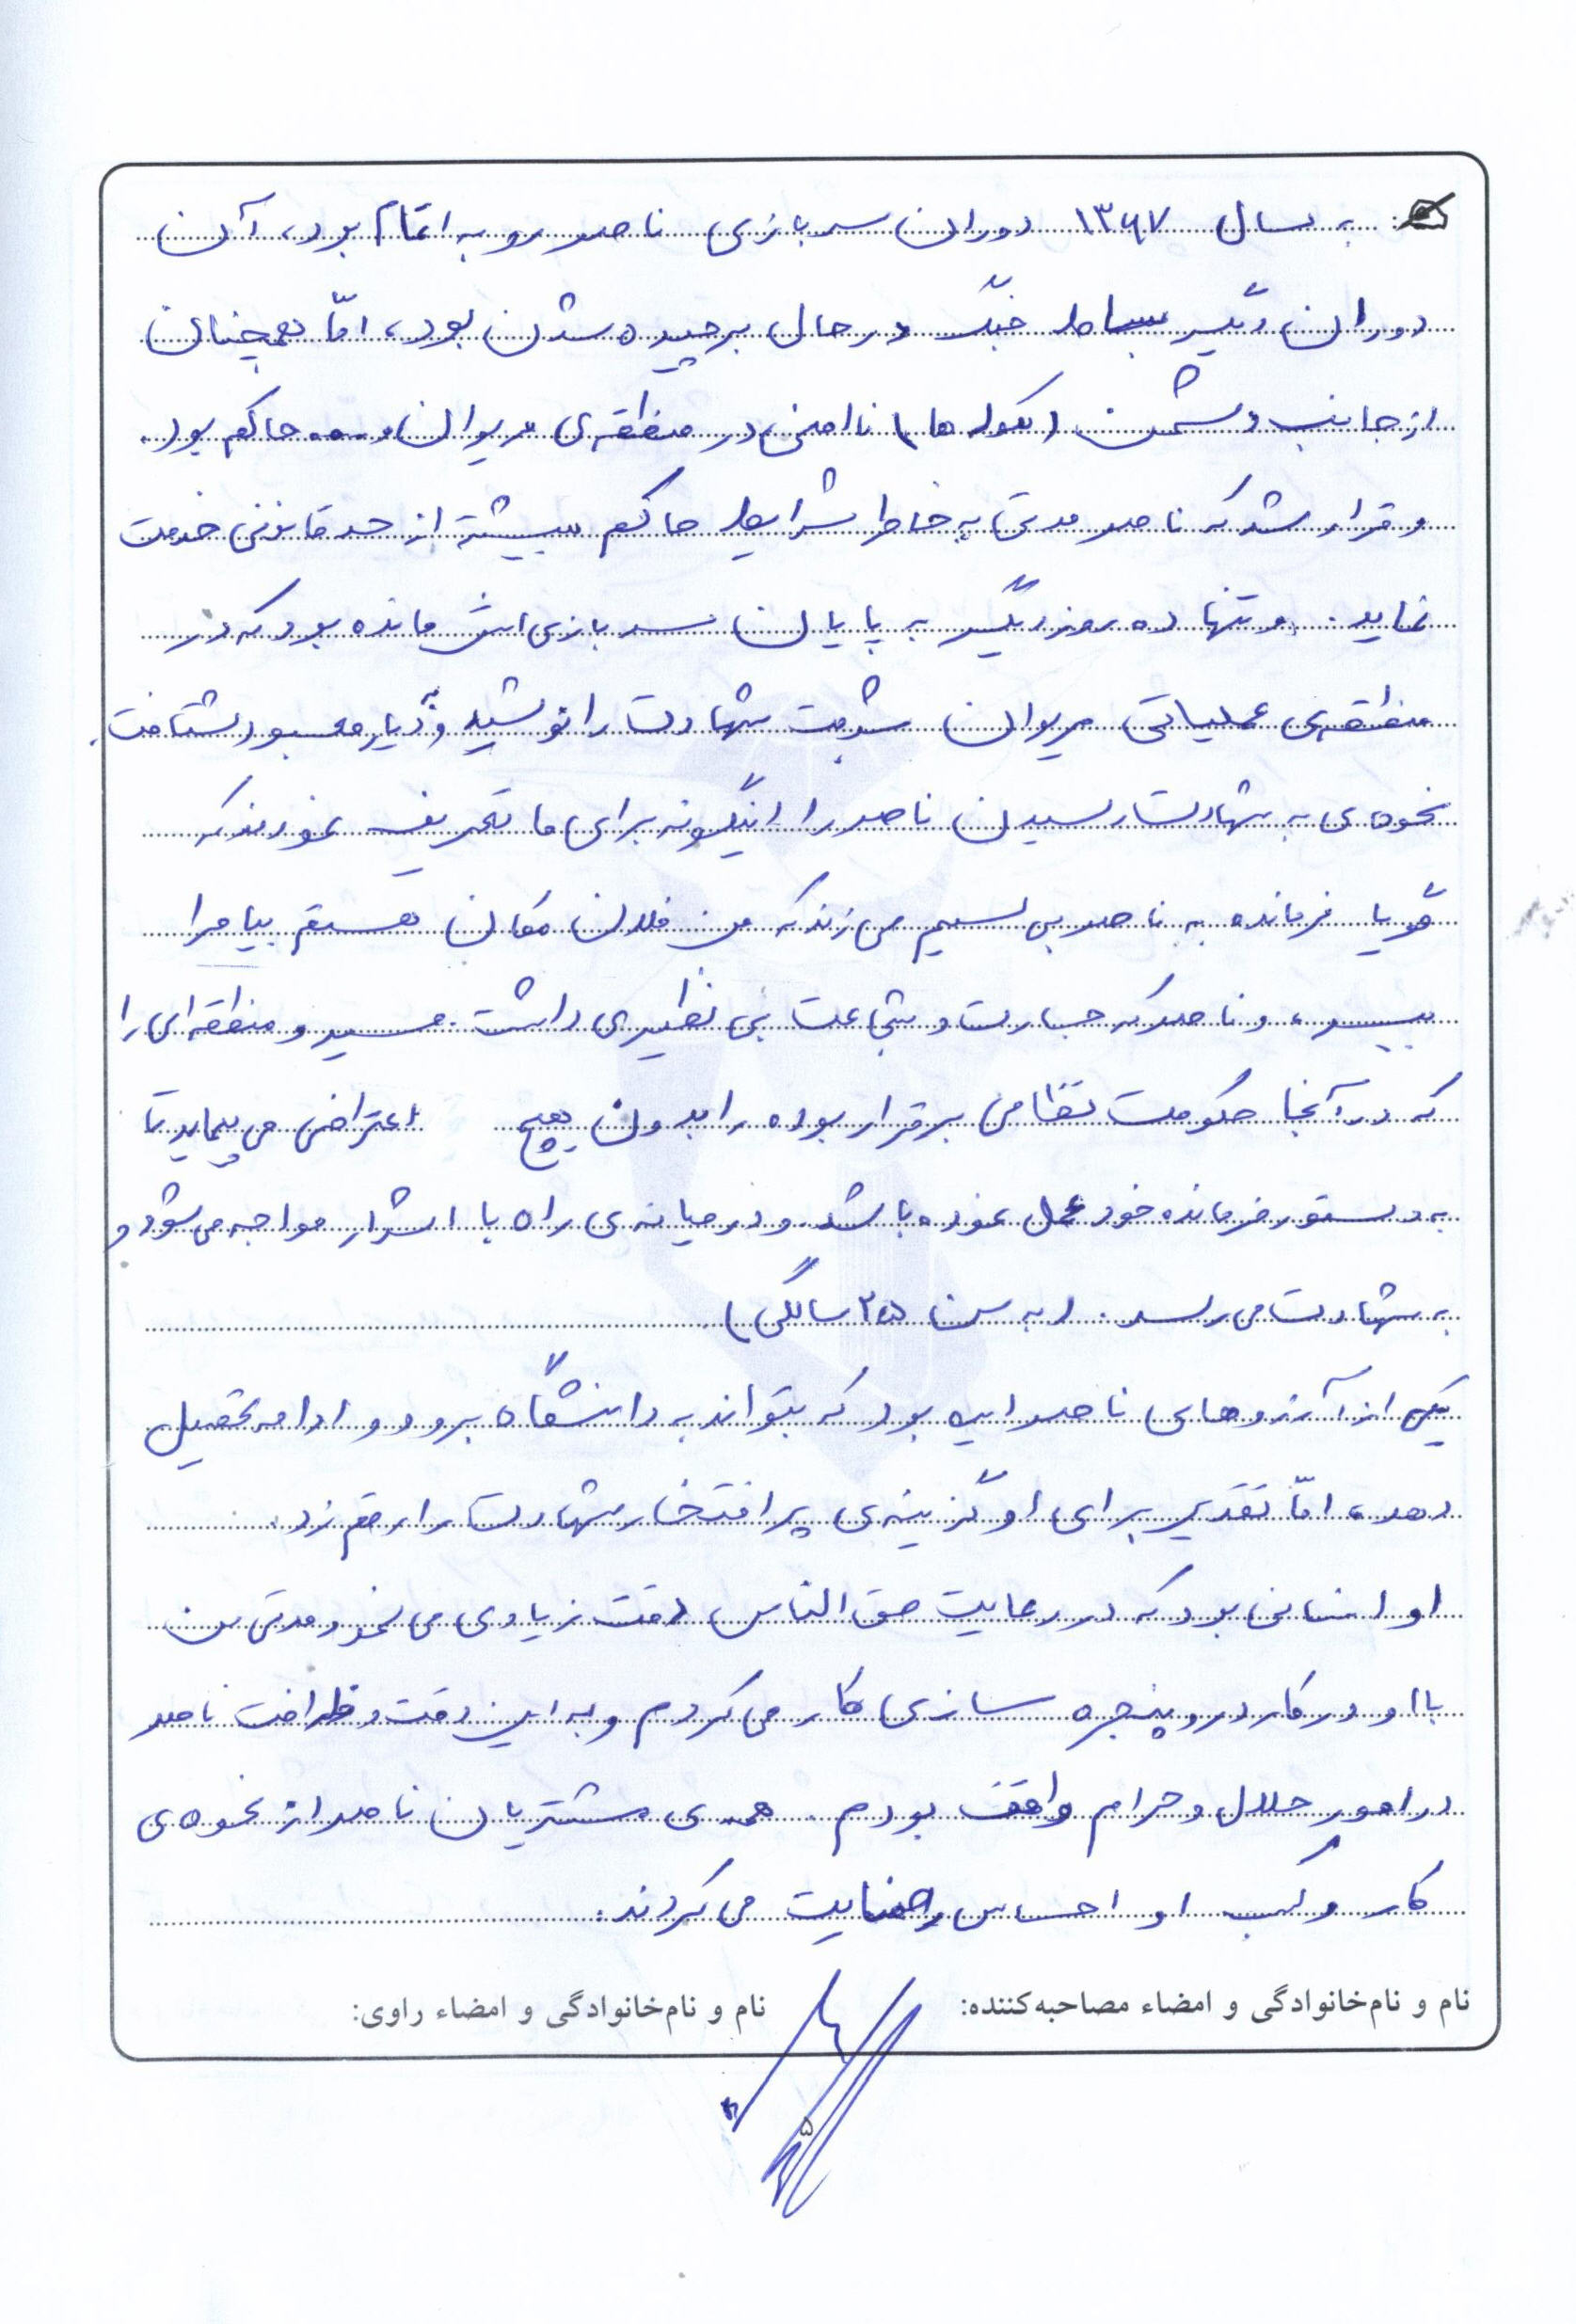 به سال ۱۳۶۷ دوران سربازی ناصر رو به اتمام بود، آن
دوران دیگر بساط جنگ در حال برچیده شدن بود، امّا همچنان
از جانب دشمن (کوله ها) ناامنی در منطقه‌ی مریوان و .... حاکم بود.
و قرار شد که ناصر مدتی به خاطر شرایط حاکم بیشتر از حد قانونی خدمت
نماید. و تنها ده روز دیگر به پایان سربازی اش مانده بود که در
منطقه‌ی عملیاتی مریوان شربت شهادت را نوشید و دیار معبود شتافت.
نحوه‌ی به شهادت رسیدن ناصر را اینگونه برای ما تعریف نمودند که
گویا فرمانده به ناصر بی سیم می زند که من فلان مکان هستم بیا مرا
ببر، و ناصر که جسارت و شجاعت بی نظیری داشت. مسیر و منطقه ای را
که در آنجا حکومت نظامی برقرار بوده را بدون هیچ اعتراض می پیماید تا
به دستور فرمانده خود عمل نموده باشد. و در میانه‌ی راه با اشرار مواجه می شود و
به شهادت می رسد. (به سن ۲۵ سالگی)
یکی از آرزوهای ناصر این بود که بتواند به دانشگاه برود و ادامه تحصیل
دهد، امّا تقدیر برای او گزینه‌ی پر افتخار شهادت را رقم زد.
او انسانی بود که در رعایت حق الناس دقت زیادی می نمود مدتی من
با او در کار در و پنجره سازی کار می کردم و به این دقت و ظرافت ناصر
در امور حلال و حرام واقف بودم. همه‌ی مشتریان ناصر از نحوه‌ی
کار و کسب او احساس رضایت می کردند.
نام و نام‌خانوادگی و امضاء مصاحبه‌کننده: نام و نام‌خانوادگی و امضاء راوی:
۵